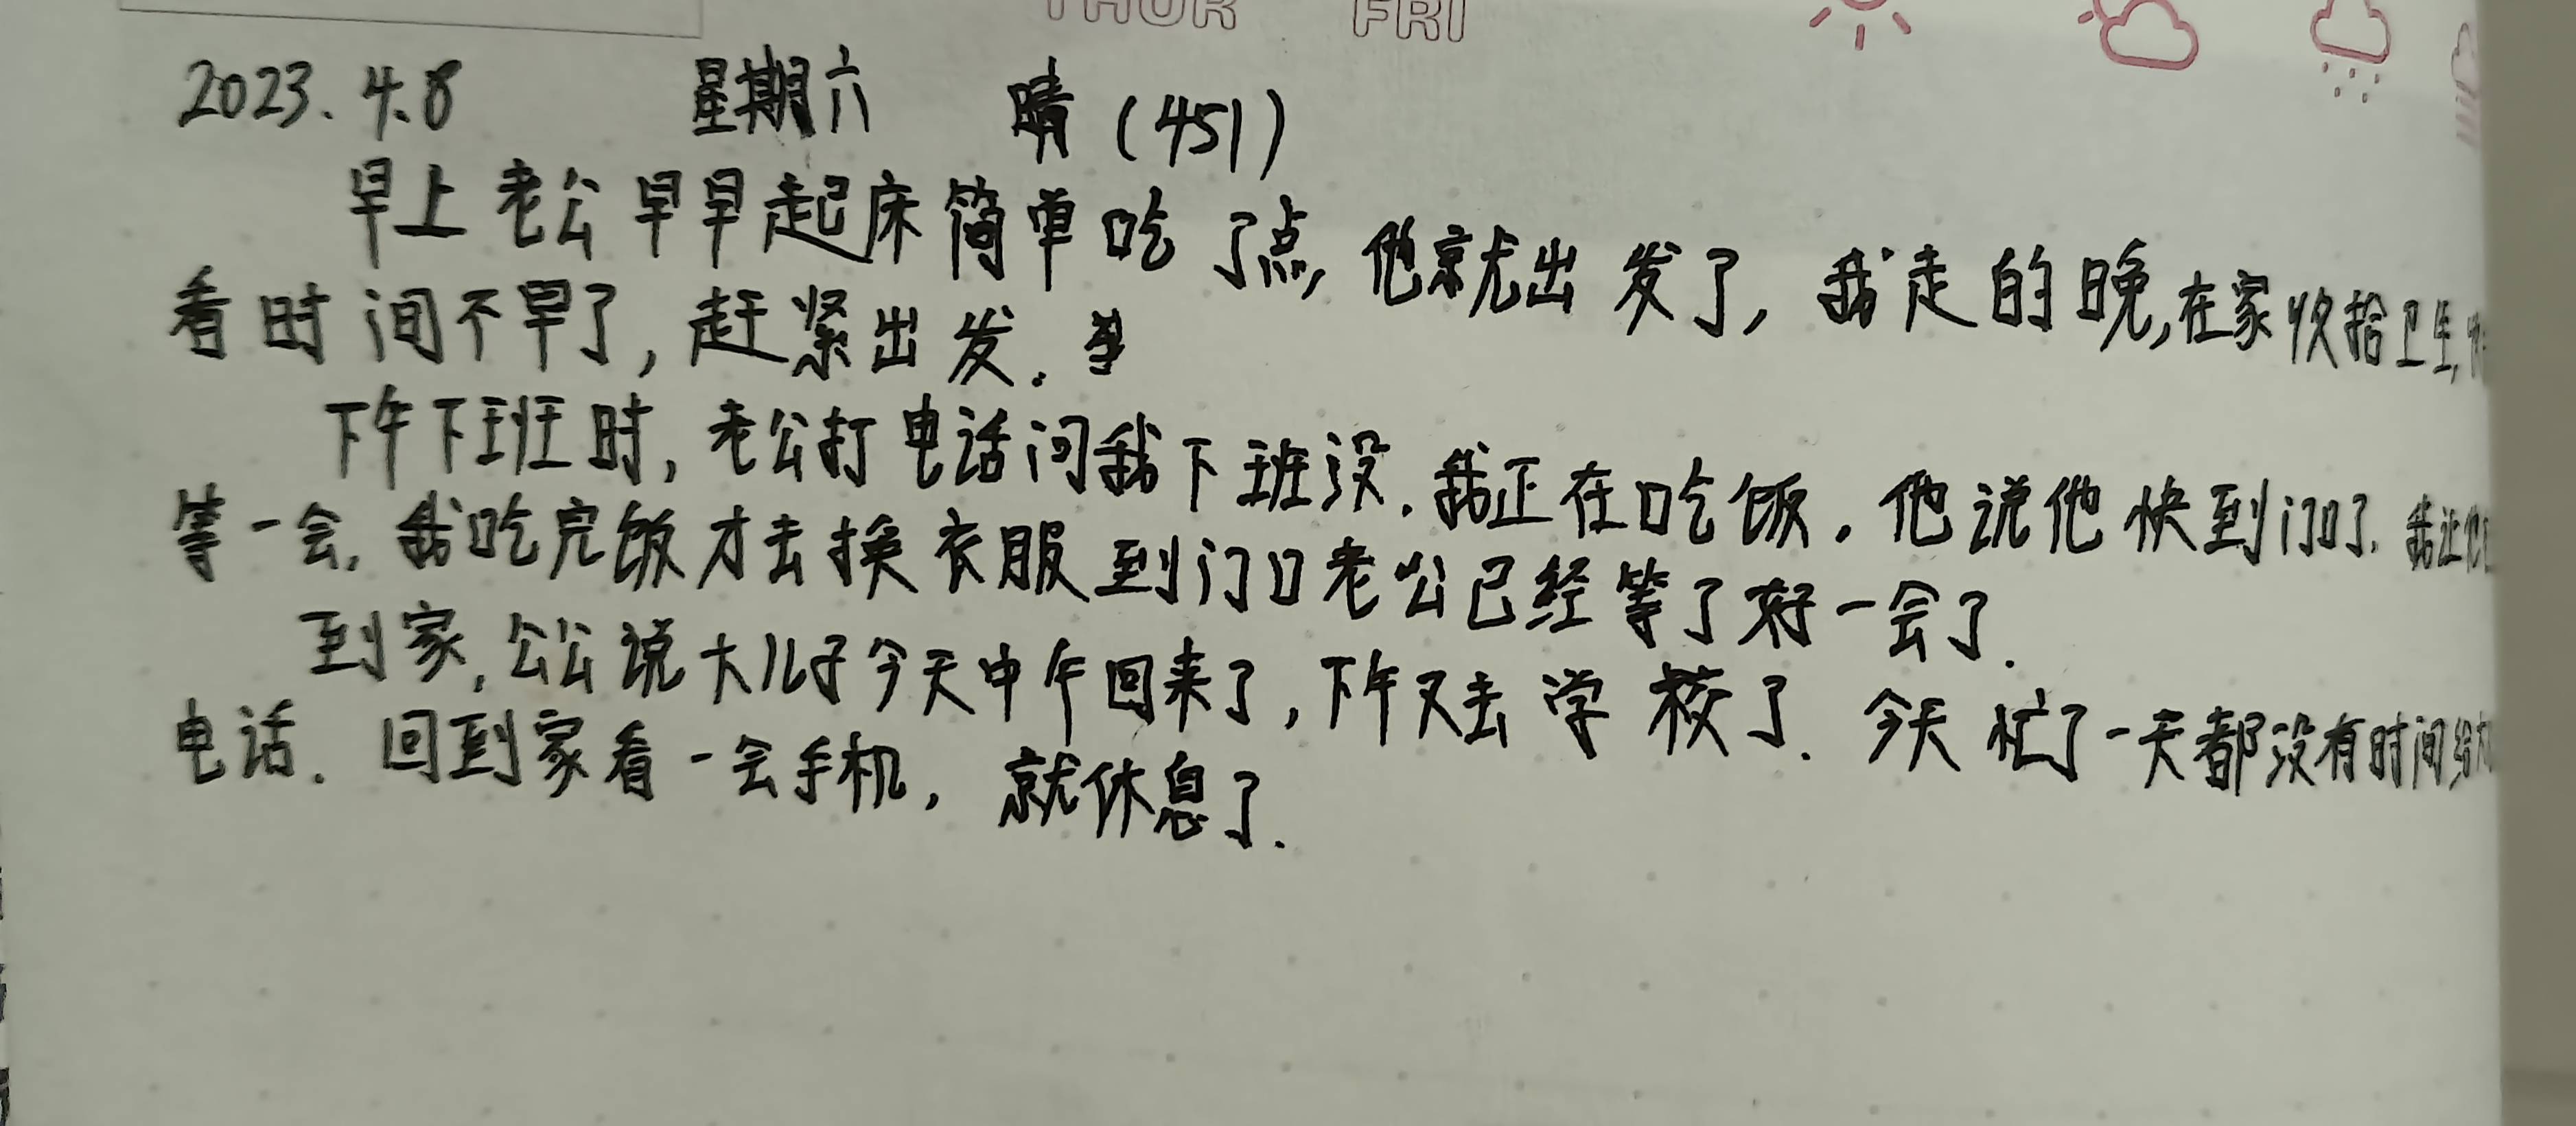 THUR FRI
2023.4.8 星期六 晴（451）
早上老公早早起床简单吃了点，他就出发了，我走的晚，在家收拾卫生，
看时间不早了，赶紧出发．
下午下班时，老公打电话问我下班没．我正在吃饭．他说他快到门口了．我让他
等一会．我吃完饭才去换衣服到门口老公已经等了好一会了．
到家，公公说大儿子今天中午回来了，下午又去学校了．今天忙了一天都没有时间给
电话．回到家看一会手机，就休息了．